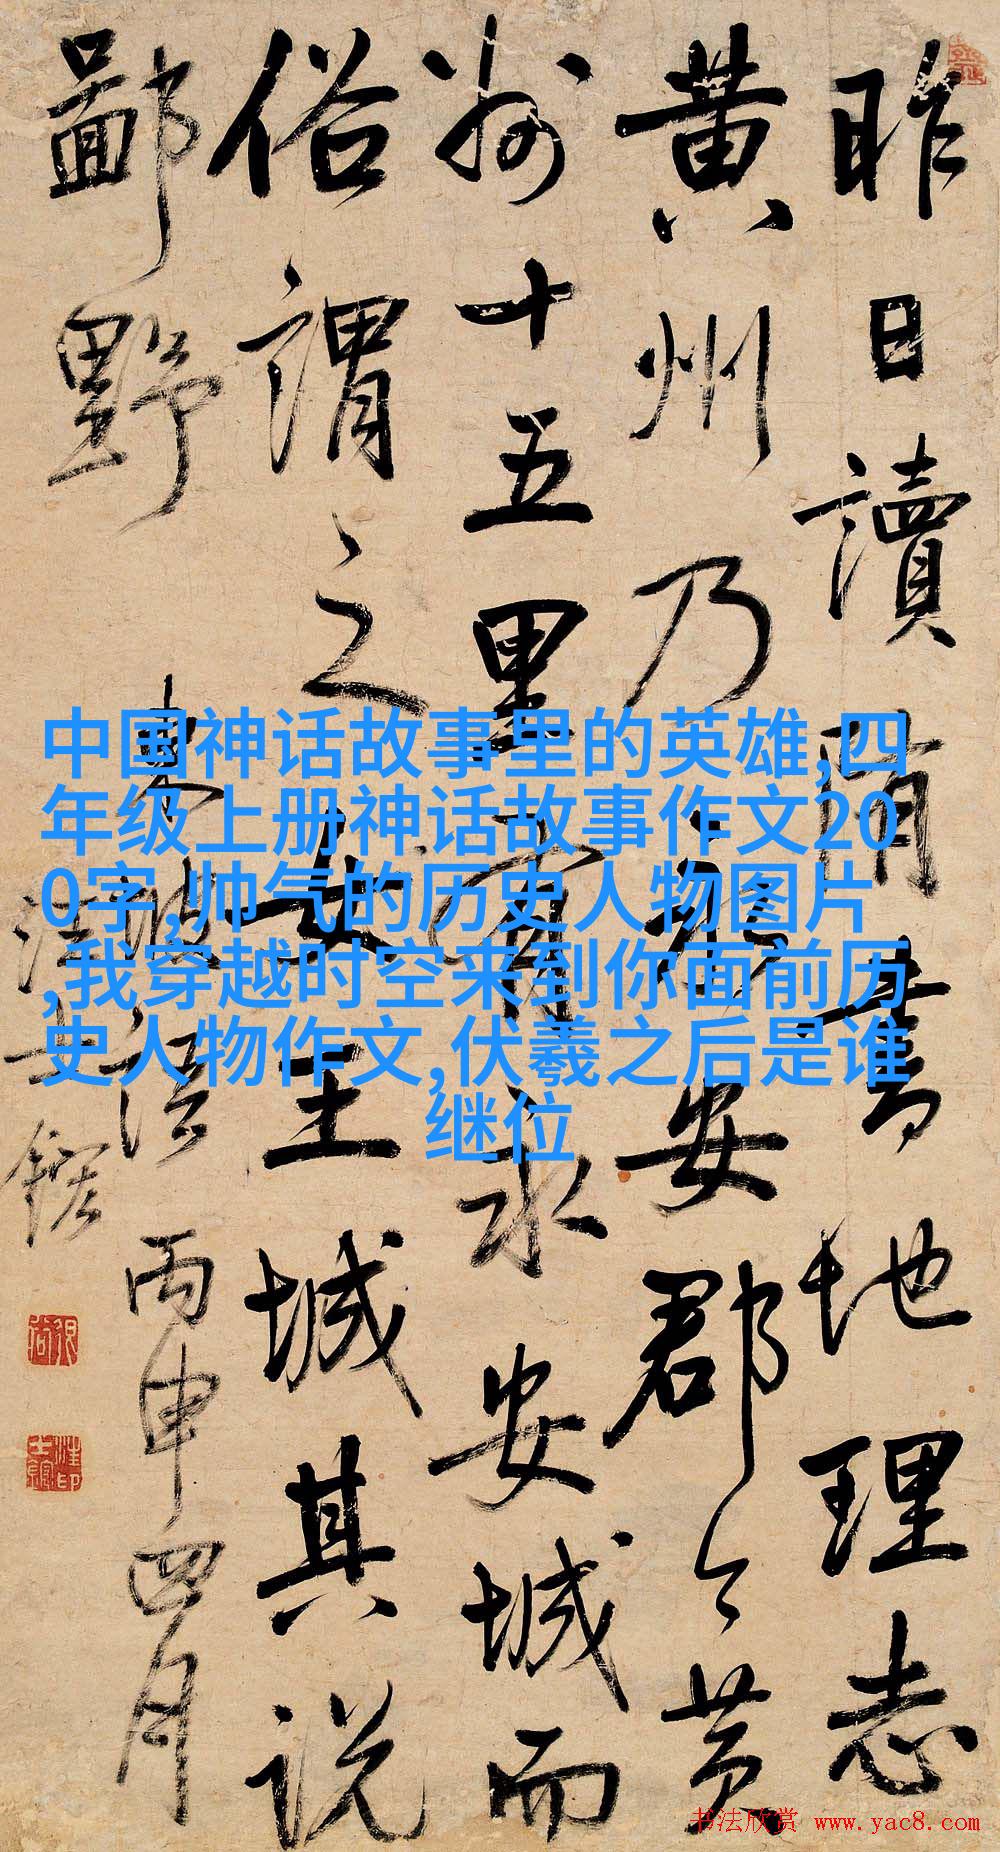 昨日讀隋書地理志
黄州乃永安郡今黄
州十五里有永安城而
俗謂之女王城其説
鄙野
東坡語 丙申四月
汪士鋐
中国神话故事里的英雄,四
年级上册神话故事作文20
0字,帅气的历史人物图片
,我穿越时空来到你面前历
史人物作文,伏羲之后是谁
继位
书法欣赏 www.yac8.com